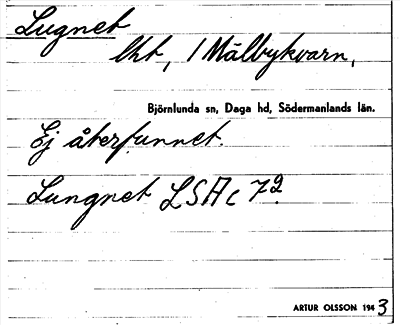 Lugnet
lht, / Målbykvarn,
Björnlunda sn, Daga hd, Södermanlands län.
Ej återfunnet.
Lungnet LSA c 72.
ARTUR OLSSON 1943